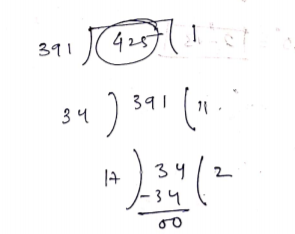 391 ) 425 ( 1
34 ) 391 ( 11.
17 ) 34 ( 2
-34
00